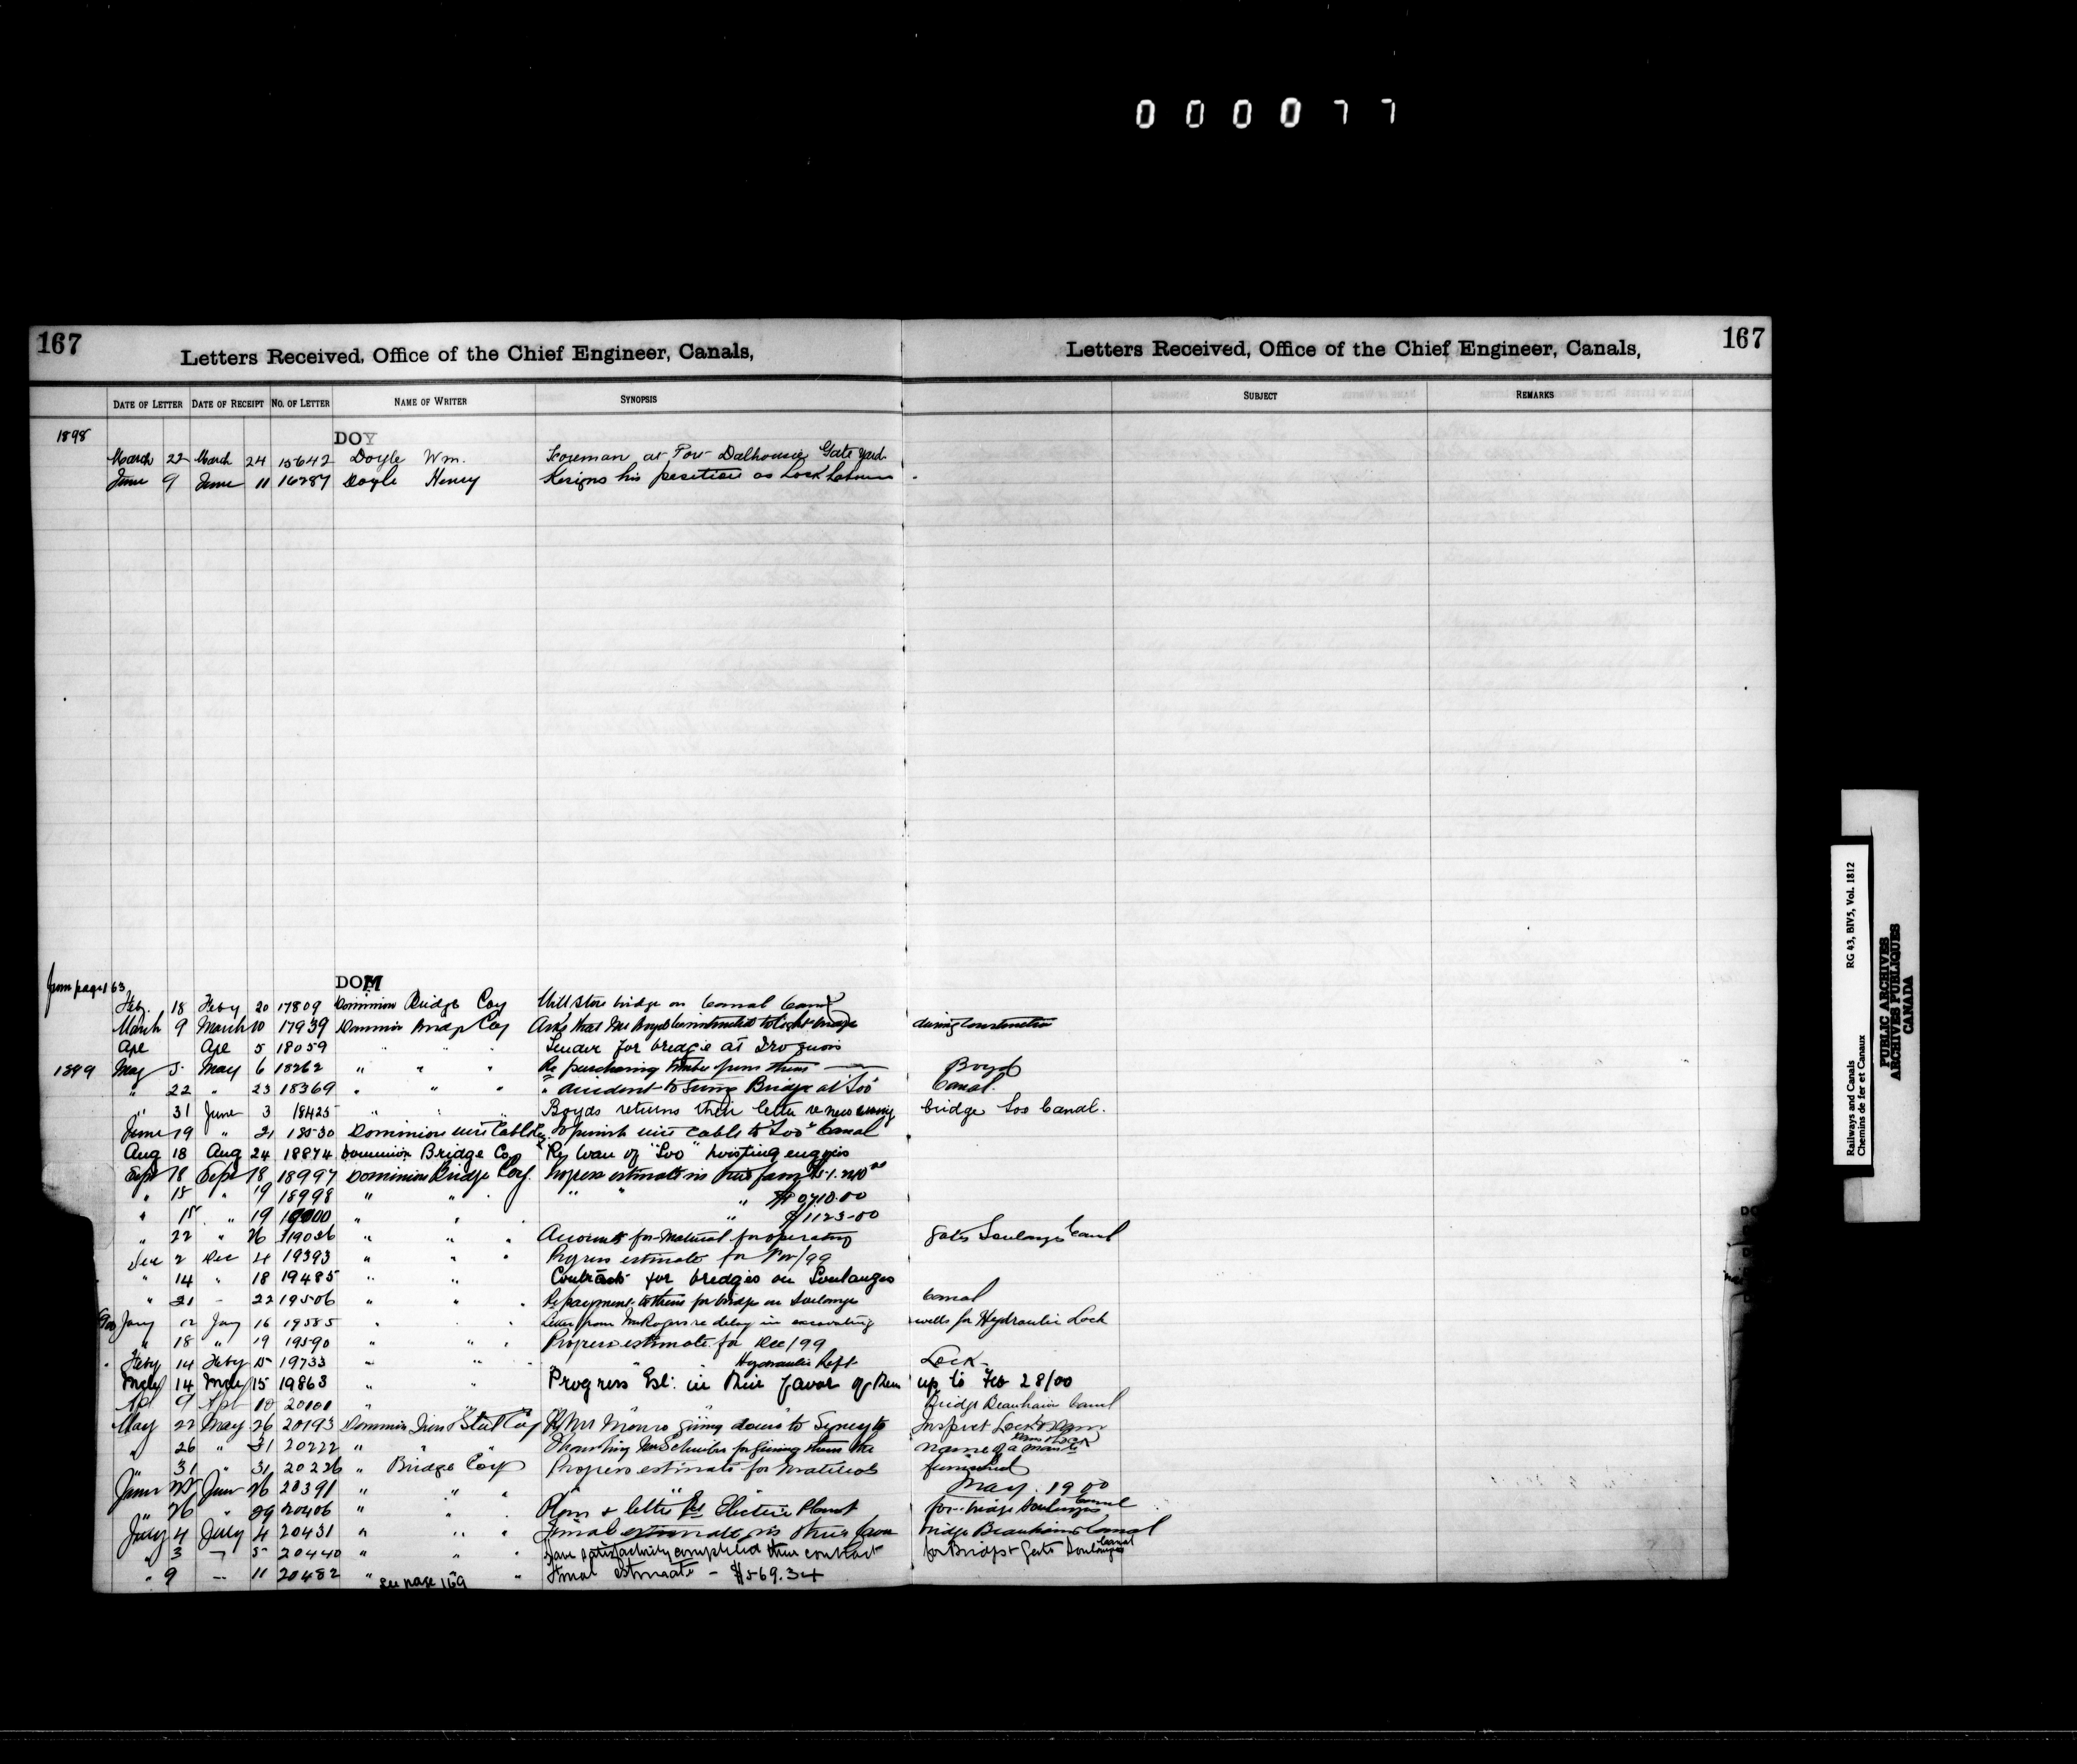 0 0 0 0 7 7
167
Letters Received, Office of the Chief Engineer, Canals,
Letters Received, Office of the Chief Engineer, Canals,
167
DATE OF LETTER DATE OF RECEIPT NO. OF LETTER NAME OF WRITER SYNOPSIS SUBJECT REMARKS
1898
DOY
March 22 March 24 15642 Doyle Wm. Foreman at Port Dalhousie Gate yard
June 9 June 11 16287 Doyle Henry Resigns his position as Lock Labourer
from page 163
DOM
Feby. 18 Feby 20 17809 Dominion Bridge Coy Mill Store bridge on Canal
March 9 March 10 17939 Dominion Bridge Coy Asks that Mr Boyd be instructed to light bridge during construction
Ape Ape 5 18059 " " " Tender for bridge at Iroquois
1899 May 5 May 6 18262 " " " Re purchasing timber from them Boyd
" 22 " 23 18369 " " " " accident to Swing Bridge at "Soo" Canal.
" 31 June 3 18425 " " " Boyds returns their letter re new swing bridge Soo Canal.
June 19 " 21 18530 Dominion Wire Cable Coy To furnish wire cable to "Soo" Canal
Aug 18 Aug 24 18874 Dominion Bridge Coy Re loan of "Soo" hoisting engines
Sept 18 Sept 18 18997 Dominion Bridge Coy. Progress estimate in their favor
" 15 " 19 18998 " " " " " " $9710.00
" 15 " 19 19000 " " " " $1123-00
" 22 " 26 19036 " " " Accounts for Material for operating gates Soulanges Canal
Dec 2 Dec 4 19393 " " " Progress estimate for Nov/99
" 14 " 18 19485 " " Contracts for bridges on Soulanges
" 21 - 22 19506 " " " Re payment to them for bridge on Soulanges Canal
900 Jany 12 Jany 16 19585 " " " Letter from Mr Rogers re delay in excavating wells for Hydraulic Lock
" 18 " 19 19590 " " " Progress estimate for Dec/99
" Feby 14 Feby 15 19733 " " " " " Hydraulic Lift Lock-
Mch 14 Mch 15 19863 " " Progress Est: in their favor of them up to Feb 28/00
Apl 9 Apl 10 20101 " " " Bridge Beauharn Canal
May 22 May 26 20193 Dominion Iron & Steel Coy Re Mr Monro going down to Syney to Inspect Lock & Dam
" 26 " 31 20222 " " " Thanking Mr Schreiber for giving them the name of a man to
" 31 " 31 20226 " Bridge Coy Progress estimate for materials furnished
June 25 June 26 20391 " " " " " " May. 1900
" 26 " 29 20406 " " " Plans & letter Re Electric Plant for bridge Soulanges Canal
July 4 July 4 20431 " " " Final estimate in their favor bridge Beauharn Canal
" 3 " 5 20440 " " " Have satisfactorily completed their contract for Bridges & Gates Soulanges Canal
" 9 -- 11 20482 " " Final estimate - $569.34
see page 169
Railways and Canals RG 43, BIV5, Vol. 1812
Chemins de fer et Canaux
PUBLIC ARCHIVES
ARCHIVES PUBLIQUES
CANADA